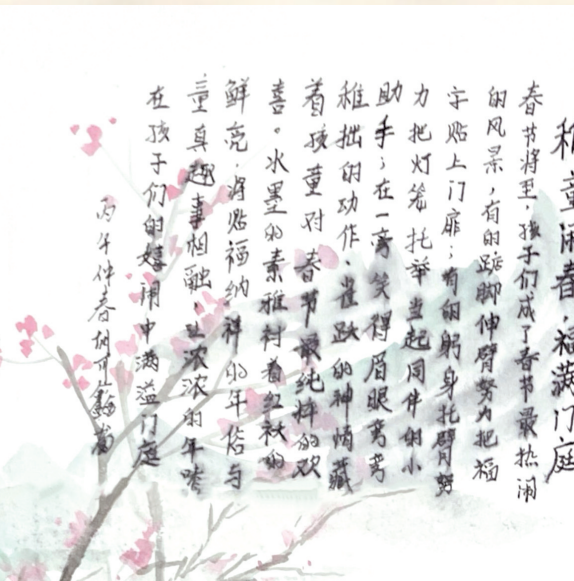 稚童闹春，福满门庭
春节将至，孩子们成了春节最热闹
的风景，有的踮脚伸臂努力把福
字贴上门扉；有的躬身托臂努
力把灯笼托举，当起同伴的小
助手；在一旁笑得眉眼弯弯
稚拙的动作、雀跃的神情藏
着孩童对春节最纯粹的欢
喜。水墨的素雅衬着红秋的
鲜亮，将贴福纳祥的年俗与
童真趣事相融，让浓浓的年味
在孩子们的嬉闹中满溢门庭
丙午仲春